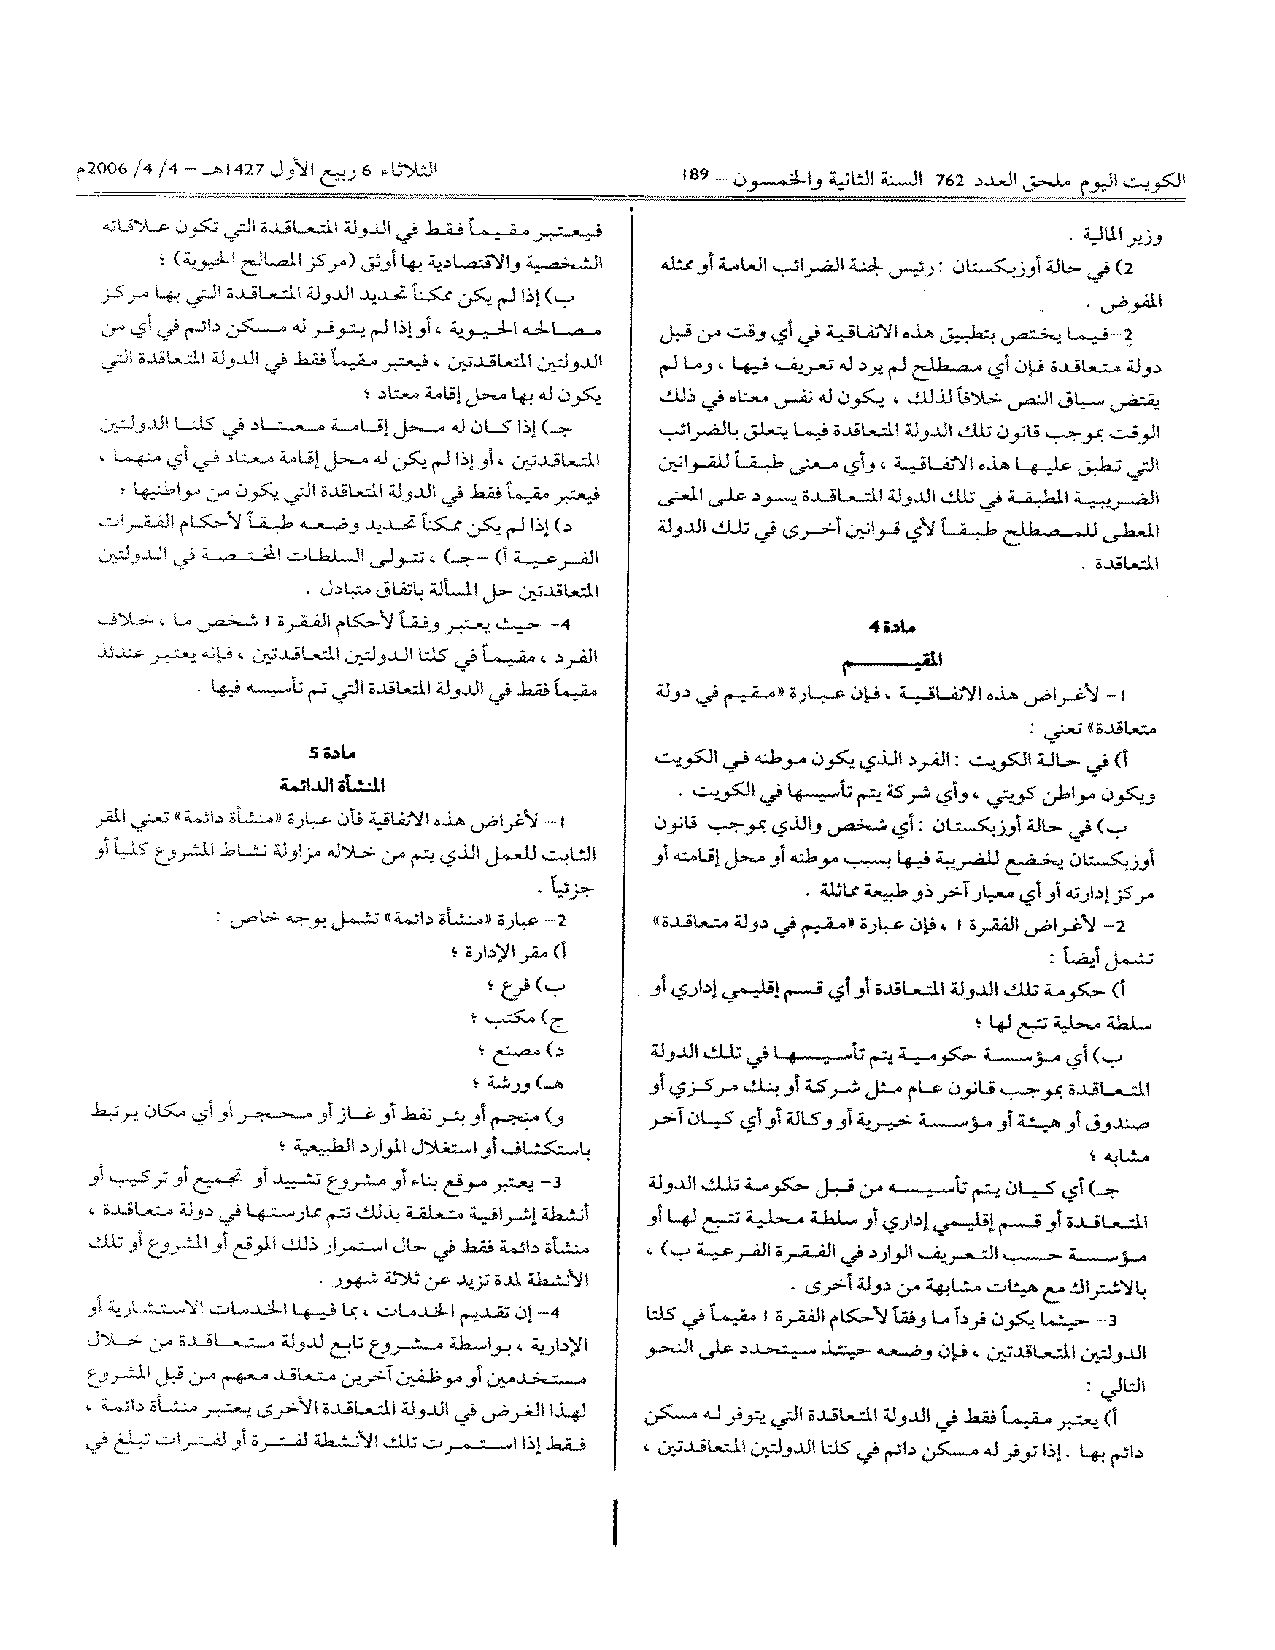 الكويت اليوم ملحق العدد 762 السنة الثانية والخمسون – 189
الثلاثاء 6 ربيع الأول 1427هـ – 4/ 4/ 2006م
وزير المالية .
2) في حالة أوزبكستان : رئيس لجنة الضرائب العامة أو ممثله
المفوض .
2- فيما يختص بتطبيق هذه الاتفاقية في أي وقت من قبل
دولة متعاقدة فإن أي مصطلح لم يرد له تعريف فيها ، وما لم
يقتض سياق النص خلافاً لذلك ، يكون له نفس معناه في ذلك
الوقت بموجب قانون تلك الدولة المتعاقدة فيما يتعلق بالضرائب
التي تطبق عليها هذه الاتفاقية ، وأي معنى طبقاً للقوانين
الضريبية المطبقة في تلك الدولة المتعاقدة يسود على المعنى
المعطى للمصطلح طبقاً لأي قوانين أخرى في تلك الدولة
المتعاقدة .
مادة 4
المقيم
1- لأغراض هذه الاتفاقية ، فإن عبارة «مقيم في دولة
متعاقدة» تعني :
أ) في حالة الكويت : الفرد الذي يكون موطنه في الكويت
ويكون مواطن كويتي ، وأي شركة يتم تأسيسها في الكويت .
ب) في حالة أوزبكستان : أي شخص والذي بموجب قانون
أوزبكستان يخضع للضريبة فيها بسبب موطنه أو محل إقامته أو
مركز إدارته أو أي معيار آخر ذو طبيعة مماثلة .
2- لأغراض الفقرة 1 ، فإن عبارة «مقيم في دولة متعاقدة»
تشمل أيضاً :
أ) حكومة تلك الدولة المتعاقدة أو أي قسم إقليمي إداري أو
سلطة محلية تتبع لها ؛
ب) أي مؤسسة حكومية يتم تأسيسها في تلك الدولة
المتعاقدة بموجب قانون عام مثل شركة أو بنك مركزي أو
صندوق أو هيئة أو مؤسسة خيرية أو وكالة أو أي كيان آخر
مشابه ؛
جـ) أي كيان يتم تأسيسه من قبل حكومة تلك الدولة
المتعاقدة أو قسم إقليمي إداري أو سلطة محلية تتبع لها أو
مؤسسة حسب التعريف الوارد في الفقرة الفرعية ب) ،
بالاشتراك مع هيئات مشابهة من دولة أخرى .
3- حيثما يكون فرداً ما وفقاً لأحكام الفقرة 1 مقيماً في كلتا
الدولتين المتعاقدتين ، فإن وضعه حينئذ سيتحدد على النحو
التالي :
أ) يعتبر مقيماً فقط في الدولة المتعاقدة التي يتوفر له مسكن
دائم بها . إذا توفر له مسكن دائم في كلتا الدولتين المتعاقدتين ،
فيعتبر مقيماً فقط في الدولة المتعاقدة التي تكون علاقاته
الشخصية والاقتصادية بها أوثق (مركز المصالح الحيوية) ؛
ب) إذا لم يكن ممكناً تحديد الدولة المتعاقدة التي بها مركز
مصالحه الحيوية ، أو إذا لم يتوفر له مسكن دائم في أي من
الدولتين المتعاقدتين ، فيعتبر مقيماً فقط في الدولة المتعاقدة التي
يكون له بها محل إقامة معتاد ؛
جـ) إذا كان له محل إقامة معتاد في كلتا الدولتين
المتعاقدتين ، أو إذا لم يكن له محل إقامة معتاد في أي منهما ،
فيعتبر مقيماً فقط في الدولة المتعاقدة التي يكون من مواطنيها ؛
د) إذا لم يكن ممكناً تحديد وضعه طبقاً لأحكام الفقرات
الفرعية أ) –جـ) ، تتولى السلطات المختصة في الدولتين
المتعاقدتين حل المسألة باتفاق متبادل .
4- حيث يعتبر وفقاً لأحكام الفقرة 1 شخص ما ، خلاف
الفرد ، مقيماً في كلتا الدولتين المتعاقدتين ، فإنه يعتبر عندئذ
مقيماً فقط في الدولة المتعاقدة التي تم تأسيسه فيها .
مادة 5
المنشأة الدائمة
1- لأغراض هذه الاتفاقية فأن عبارة «منشأة دائمة» تعني المقر
الثابت للعمل الذي يتم من خلاله مزاولة نشاط المشروع كلياً أو
جزئياً .
2- عبارة «منشأة دائمة» تشمل بوجه خاص :
أ) مقر الإدارة ؛
ب) فرع ؛
ج) مكتب ؛
د) مصنع ؛
هـ) ورشة ؛
و) منجم أو بئر نفط أو غاز أو محجر أو أي مكان يرتبط
باستكشاف أو استغلال الموارد الطبيعية ؛
3- يعتبر موقع بناء أو مشروع تشييد أو تجميع أو تركيب أو
أنشطة إشرافية متعلقة بذلك تتم ممارستها في دولة متعاقدة ،
منشأة دائمة فقط في حال استمرار ذلك الموقع أو المشروع أو تلك
الأنشطة لمدة تزيد عن ثلاثة شهور .
4- إن تقديم الخدمات ، بما فيها الخدمات الاستشارية أو
الإدارية ، بواسطة مشروع تابع لدولة متعاقدة من خلال
مستخدمين أو موظفين آخرين متعاقد معهم من قبل المشروع
لهذا الغرض في الدولة المتعاقدة الأخرى يعتبر منشأة دائمة ،
فقط إذا استمرت تلك الأنشطة لفترة أو لفترات تبلغ في